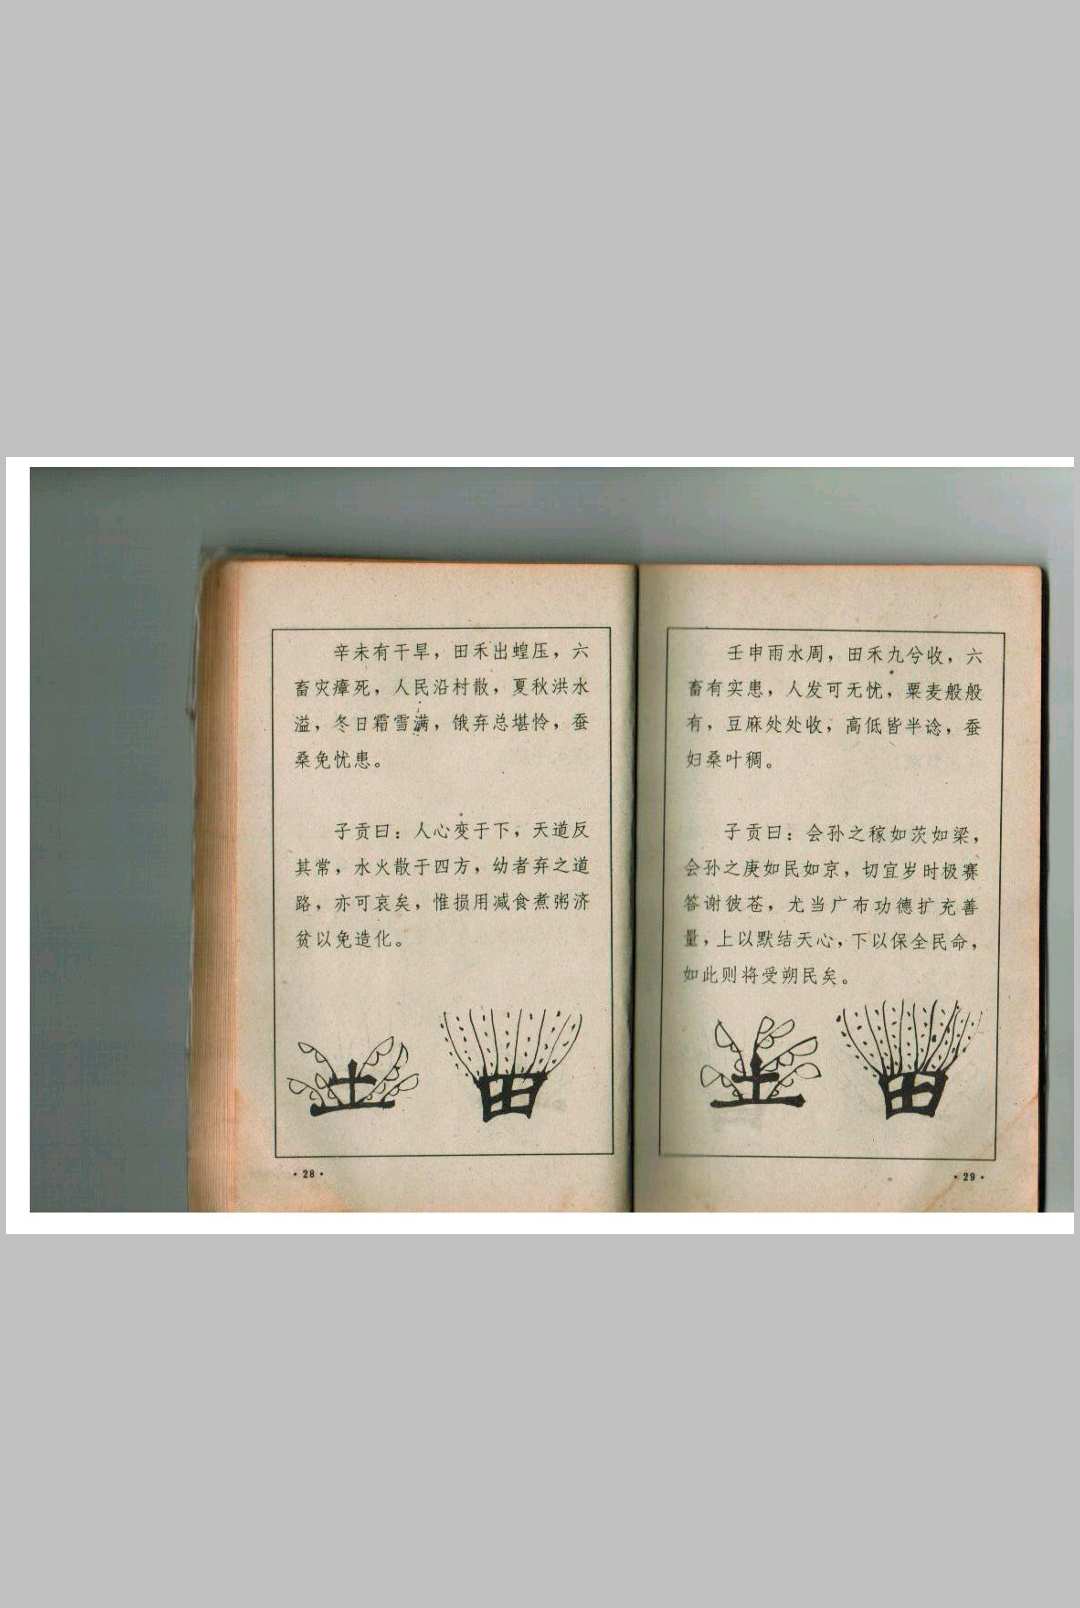 辛未有干旱，田禾出蝗压，六
畜灾瘴死，人民沿村散，夏秋洪水
溢，冬日霜雪满，饿弃总堪怜，蚕
桑免忧患。
子贡曰：人心变于下，天道反
其常，水火散于四方，幼者弃之道
路，亦可哀矣，惟损用减食煮粥济
贫以免造化。
土 田
·28·
壬申雨水周，田禾九兮收，六
畜有实患，人发可无忧，粟麦般般
有，豆麻处处收，高低皆半谂，蚕
妇桑叶稠。
子贡曰：会孙之稼如茨如梁，
会孙之庚如民如京，切宜岁时极赛
答谢彼苍，尤当广布功德扩充善
量，上以默结天心，下以保全民命，
如此则将受朔民矣。
土 田
·29·